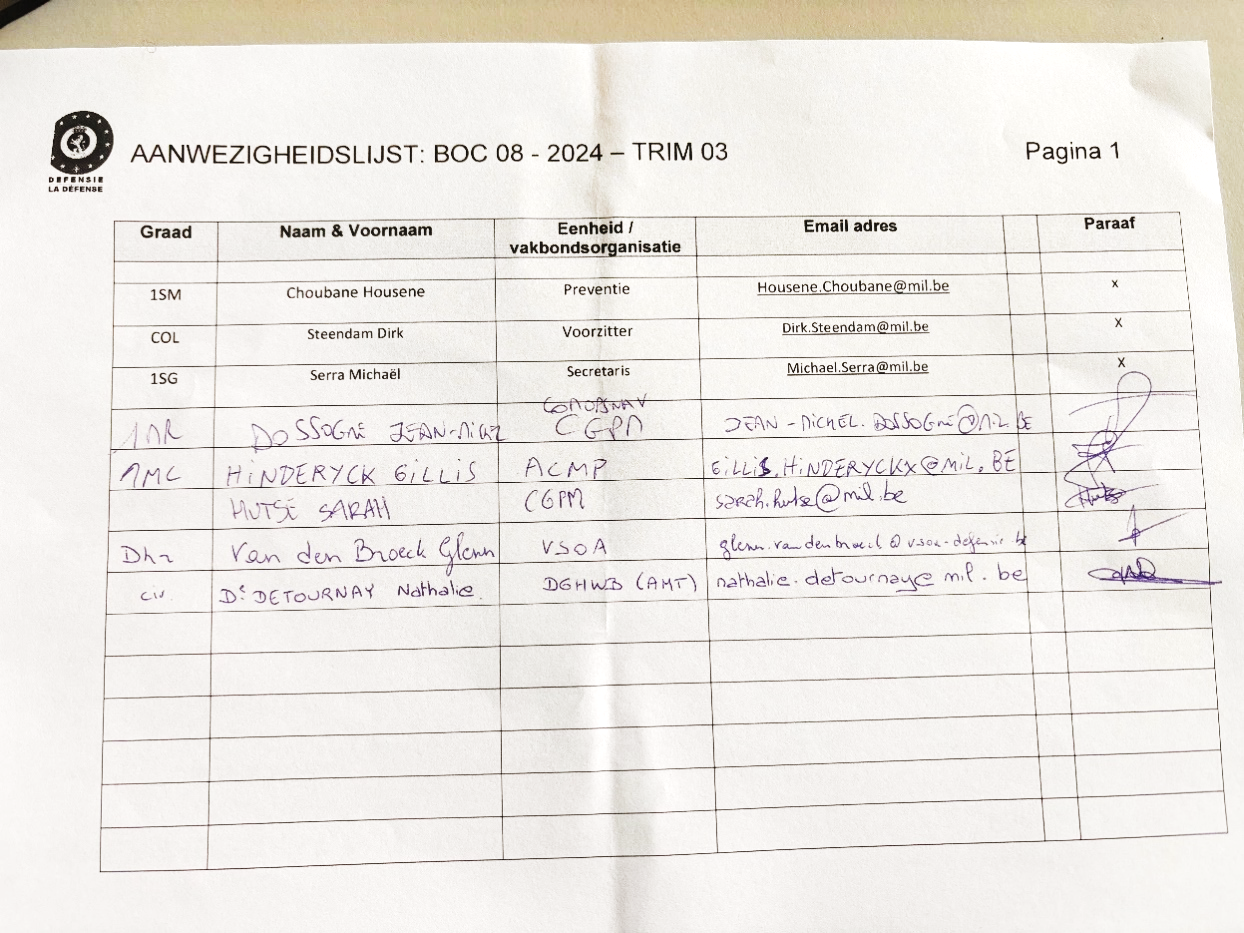 DEFENSIE
LA DÉFENSE
AANWEZIGHEIDSLIJST: BOC 08 - 2024 – TRIM 03 Pagina 1
Graad Naam & Voornaam Eenheid / vakbondsorganisatie Email adres Paraaf
1SM Choubane Housene Preventie Housene.Choubane@mil.be x
COL Steendam Dirk Voorzitter Dirk.Steendam@mil.be X
1SG Serra Michaël Secretaris Michael.Serra@mil.be X
DOSSOGNE JEAN-MICHEL CGPM JEAN-MICHEL.DOSSOGNE@MIL.BE
1MC HINDERYCK GILLIS ACMP GILLIS.HINDERYCKX@MIL.BE
HUTSE SARAH CGPM sarah.hutse@mil.be
Dhr Van den Broeck Glenn VSOA glenn.vandenbroeck@vsoa-defensie.be
civ. Dr DETOURNAY Nathalie. DGHWB (AMT) nathalie.detournay@mil.be